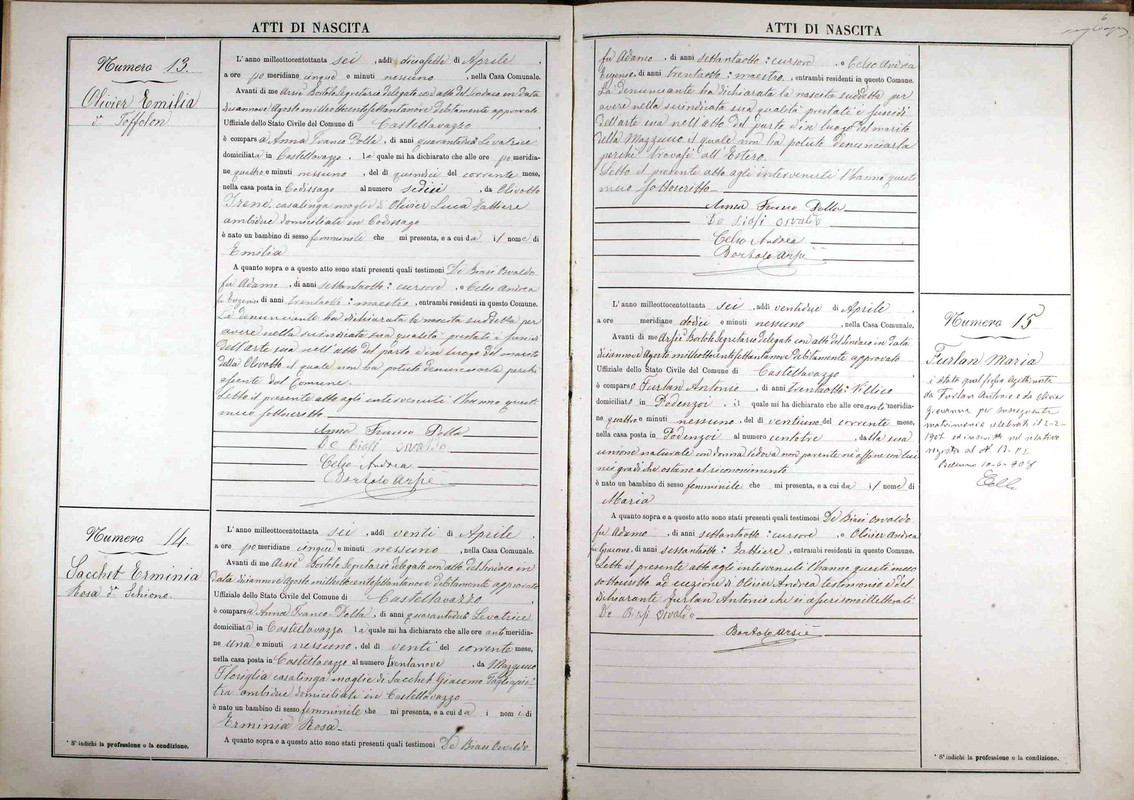 ATTI DI NASCITA
Numero 13.
Olivier Emilia
d.º Toffolon
L'anno milleottocentottanta sei, addì diciasette di Aprile,
a ore po meridiane cinque e minuti nessuno, nella Casa Comunale.
Avanti di me Arsiè Bortolo Segretario delegato con atto del Sindaco in data
diciannove Agosto milleottocentosettantanove debitamente approvato
Uffiziale dello Stato Civile del Comune di Castellavazzo,
è comparsa Anna Franco Dolla, di anni quarantadue Levatrice
domiciliata in Castellavazzo, la quale mi ha dichiarato che alle ore po meridia-
ne quattro e minuti nessuno, del dì quindici del corrente mese,
nella casa posta in Codissago al numero sedici, da Olivotto
Irene, casalinga moglie di Olivier Luca Zattiere
ambidue domiciliati in Codissago
è nato un bambino di sesso femminile che mi presenta, e a cui da il nome di
Emilia
A quanto sopra e a questo atto sono stati presenti quali testimoni De Biasi Osvaldo
fu Adamo, di anni settantaotto: cursore, e Celso Andrea
fu Eugenio di anni trentaotto: maestro, entrambi residenti in questo Comune.
La denunciante ha dichiarato la nascita suddetta per
avere nella suindicata sua qualità prestati i sussidi
dell'arte sua nell'atto del parto ed in luogo del marito
della Olivotto il quale non ha potuto denunciarla perchè
assente dal Comune.
Letto il presente atto agli intervenuti l'hanno questi
meco sottoscritto
Anna Franco Dolla
De Biasi Osvaldo
Celso Andrea
Bortolo Arsiè
Numero 14.
Sacchet Erminia
Rosa d.º Schiono.
L'anno milleottocentottanta sei, addì venti di Aprile,
a ore po meridiane cinque e minuti nessuno, nella Casa Comunale.
Avanti di me Arsiè Bortolo Segretario delegato con atto del Sindaco in
data diciannove Agosto milleottocentosettantanove debitamente approvato
Uffiziale dello Stato Civile del Comune di Castellavazzo,
è comparsa Anna Franco Dolla, di anni quarantadue Levatrice
domiciliata in Castellavazzo, la quale mi ha dichiarato che alle ore anti meridia-
ne una e minuti nessuno, del dì venti del corrente mese,
nella casa posta in Castellavazzo al numero trentanove, da Mazzucco
Floriglia casalinga moglie di Sacchet Giacomo Tagliapie-
tra ambidue domiciliati in Castellavazzo
è nato un bambino di sesso femminile che mi presenta, e a cui da i nomi di
Erminia Rosa
A quanto sopra e a questo atto sono stati presenti quali testimoni De Biasi Osvaldo
* Si indichi la professione o la condizione.
ATTI DI NASCITA
fu Adamo, di anni settantaotto: cursore, e Celso Andrea
fu Eugenio, di anni trentaotto: maestro, entrambi residenti in questo Comune.
La denunciante ha dichiarata la nascita suddetta per
avere nella suindicata sua qualità prestati i sussidi
dell'arte sua nell'atto del parto ed in luogo del marito
della Mazzucco il quale non ha potuto denunciarla
perchè trovasi all'Estero.
Letto il presente atto agli intervenuti l'hanno questi
meco sottoscritto
Anna Franco Dolla
De Biasi Osvaldo
Celso Andrea
Bortolo Arsiè
L'anno milleottocentottanta sei, addì ventidue di Aprile,
a ore meridiane dodici e minuti nessuno, nella Casa Comunale.
Avanti di me Arsiè Bortolo Segretario delegato con atto del Sindaco in data
diciannove Agosto milleottocentosettantanove debitamente approvato
Uffiziale dello Stato Civile del Comune di Castellavazzo,
è comparso Furlan Antonio, di anni trentaotto: Villico
domiciliato in Podenzoi, il quale mi ha dichiarato che alle ore anti meridia-
ne quattro e minuti nessuno, del dì ventiuno del corrente mese,
nella casa posta in Podenzoi al numero centotre, dalla sua
unione naturale con donna vedova non parente nè affine con lui
nei gradi che ostano al riconoscimento
è nato un bambino di sesso femminile che mi presenta, e a cui da il nome di
Maria
A quanto sopra e a questo atto sono stati presenti quali testimoni De Biasi Osvaldo
fu Adamo, di anni settantaotto: cursore, e Olivier Andrea
di anni sessantaotto: Zattiere, entrambi residenti in questo Comune.
Letto il presente atto agli intervenuti l'hanno questi meco
sottoscritto ad eccezione di Olivier Andrea testimonio e del
dichiarante Furlan Antonio che si asserirono illetterati
De Biasi Osvaldo
Bortolo Arsiè
Numero 15
Furlan Maria
è stata qual figlia legittimata
da Furlan Antonio e da Olivier
Giovanna per susseguente
matrimonio celebrato il 2-2-
1907 ed inscritto nel relativo
registro al N.
Belluno 10-6-908
* Si indichi la professione o la condizione.